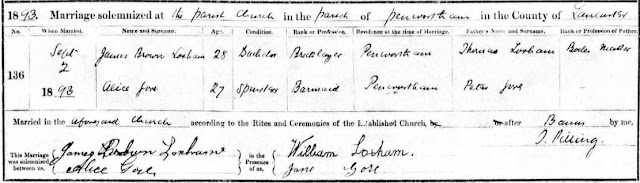 1893. Marriage solemnized at the parish church in the parish of Penwortham in the County of Lancaster
No. When Married. Name and Surname. Age. Condition. Rank or Profession. Residence at the time of Marriage. Father's Name and Surname. Rank or Profession of Father.
136 Sept 2 1893 James Brown Loxham 28 Bachelor Bricklayer Penwortham Thomas Loxham Boiler Maker
Alice Gore 27 Spinster Barmaid Penwortham Peter Gore
Married in the aforesaid Church according to the Rites and Ceremonies of the Established Church, by or after Banns by me,
J. Pilling.
This Marriage was solemnized between us, James Brown Loxham Alice Gore in the Presence of us, William Loxham. Jane Gore